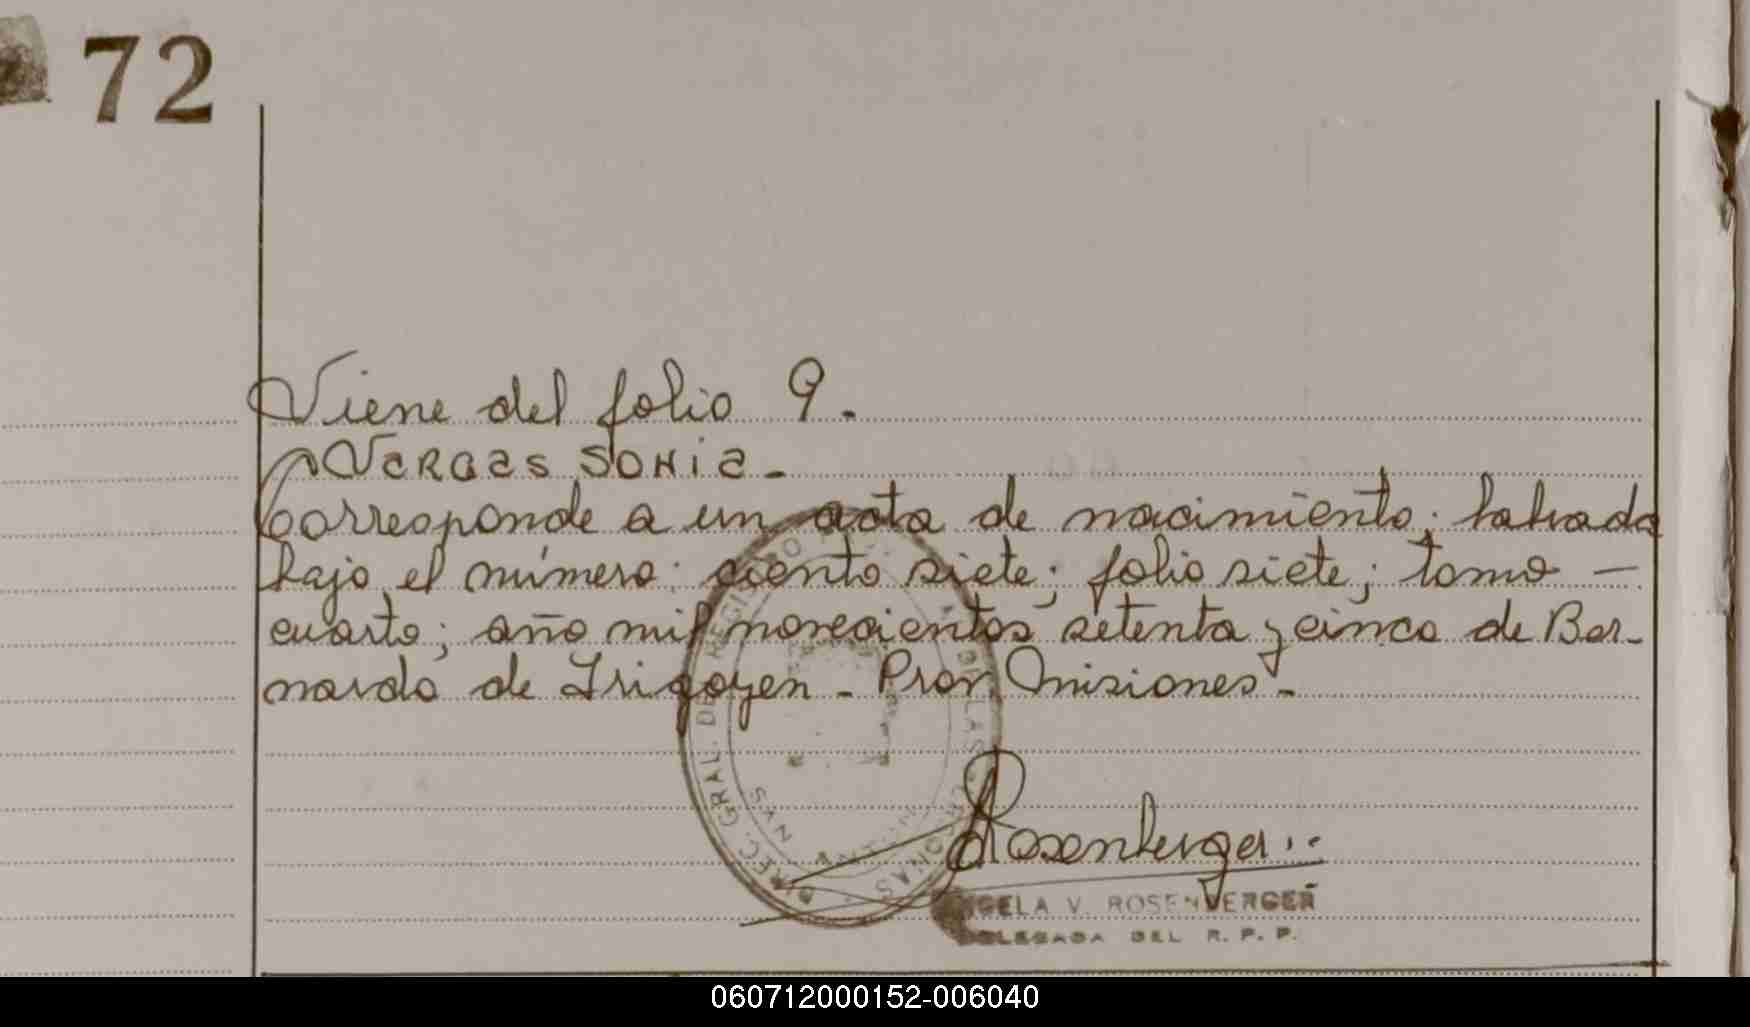 72
Viene del folio 9.
VARGAS SONIA-
Corresponde a un acta de nacimiento; labrada
bajo el número: ciento siete; folio siete; tomo —
cuarto; año mil novecientos setenta y cinco de Ber-
nardo de Irigoyen - Prov. Misiones.-
DIREC. GRAL. DEL REGISTRO
DE LAS PERSONAS
Rosenberger
ANGELA V. ROSENBERGER
DELEGADA DEL R. P. P.
060712000152-006040